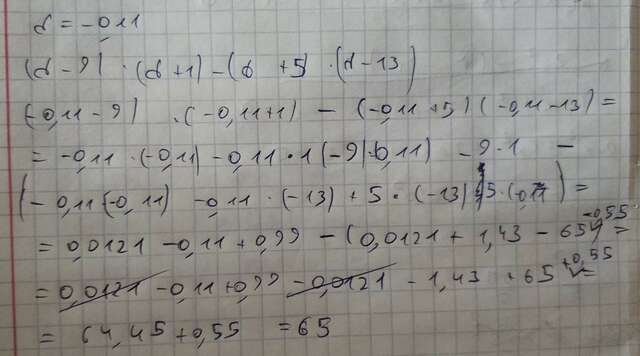 d = -0,11
(d - 9) · (d + 1) - (d + 5) · (d - 13)
(-0,11 - 9) · (-0,11+1) - (-0,11 + 5) (-0,11 - 13) =
= -0,11 · (-0,11) - 0,11 · 1 (-9)(-0,11) - 9 · 1 -
(-0,11 (-0,11) - 0,11 · (-13) + 5 · (-13) 5 · (-0,11)) =
= 0,0121 - 0,11 + 0,99 - (0,0121 + 1,43 - 65 -0,55) =
= 0,0121 - 0,11 + 0,99 - 0,0121 - 1,43 + 65 +0,55 =
= 64,45 + 0,55 = 65